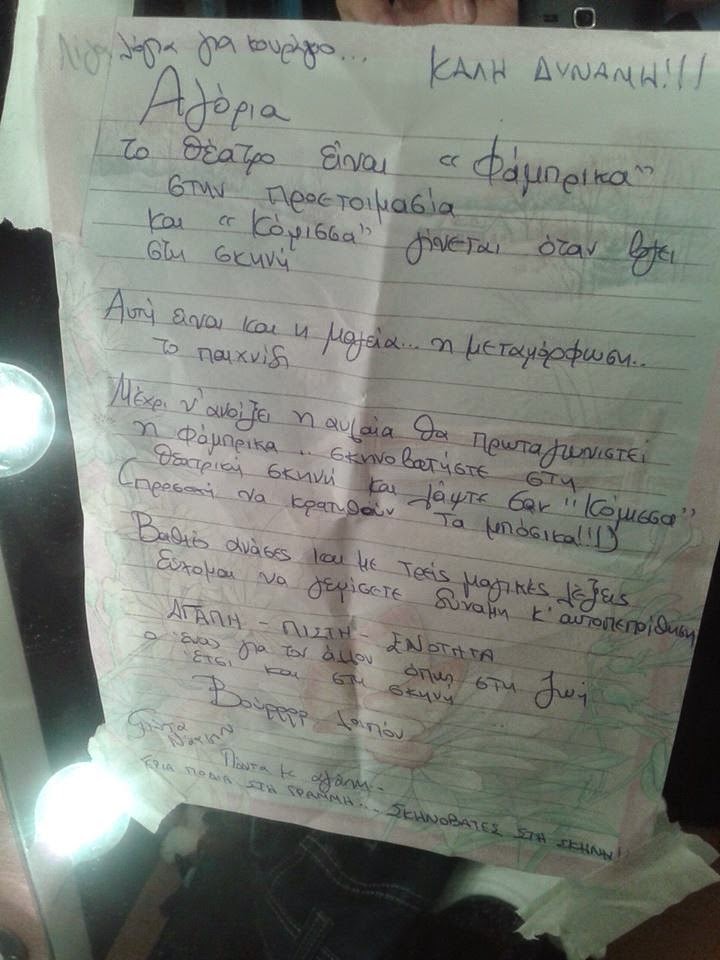 Λίγα λόγια για κουράγιο...
ΚΑΛΗ ΔΥΝΑΜΗ!!!
Αγόρια
το θέατρο είναι "Φάμπρικα"
στην προετοιμασία
και "Κόμισσα" γίνεται όταν βγει
στη σκηνή
Αυτή είναι και η μαγεία... η μεταμόρφωση..
το παιχνίδι
Μέχρι ν' ανοίξει η αυλαία θα πρωταγωνιστεί
η φάμπρικα.. σκηνοβατήστε στη
θεατρική σκηνή και λάμψτε σαν "Κόμισσα"
(προσοχή να κρατηθούν τα μπόσικα!!!)
Βαθιές ανάσες και με τρείς μαγικές λέξεις
Εύχομαι να γεμίσετε δύναμη κ' αυτοπεπρίθηση
ΑΓΑΠΗ - ΠΙΣΤΗ - ΕΝΟΤΗΤΑ
ο ένας για τον άλλον όπως στη ζωή
έτσι και στη σκηνή
Βούρρρρ λοιπόν
Πάντα με αγάπη..
ΤΡΙΑ ΠΟΔΙΑ ΣΤΗ ΓΡΑΜΜΗ... ΣΚΗΝΟΒΑΤΕΣ ΣΤΗ ΣΚΗΝΗ!!